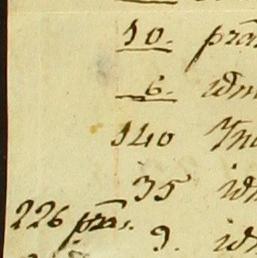 10. prã
6. idm
140
35 idm
226 prãs.
9. id